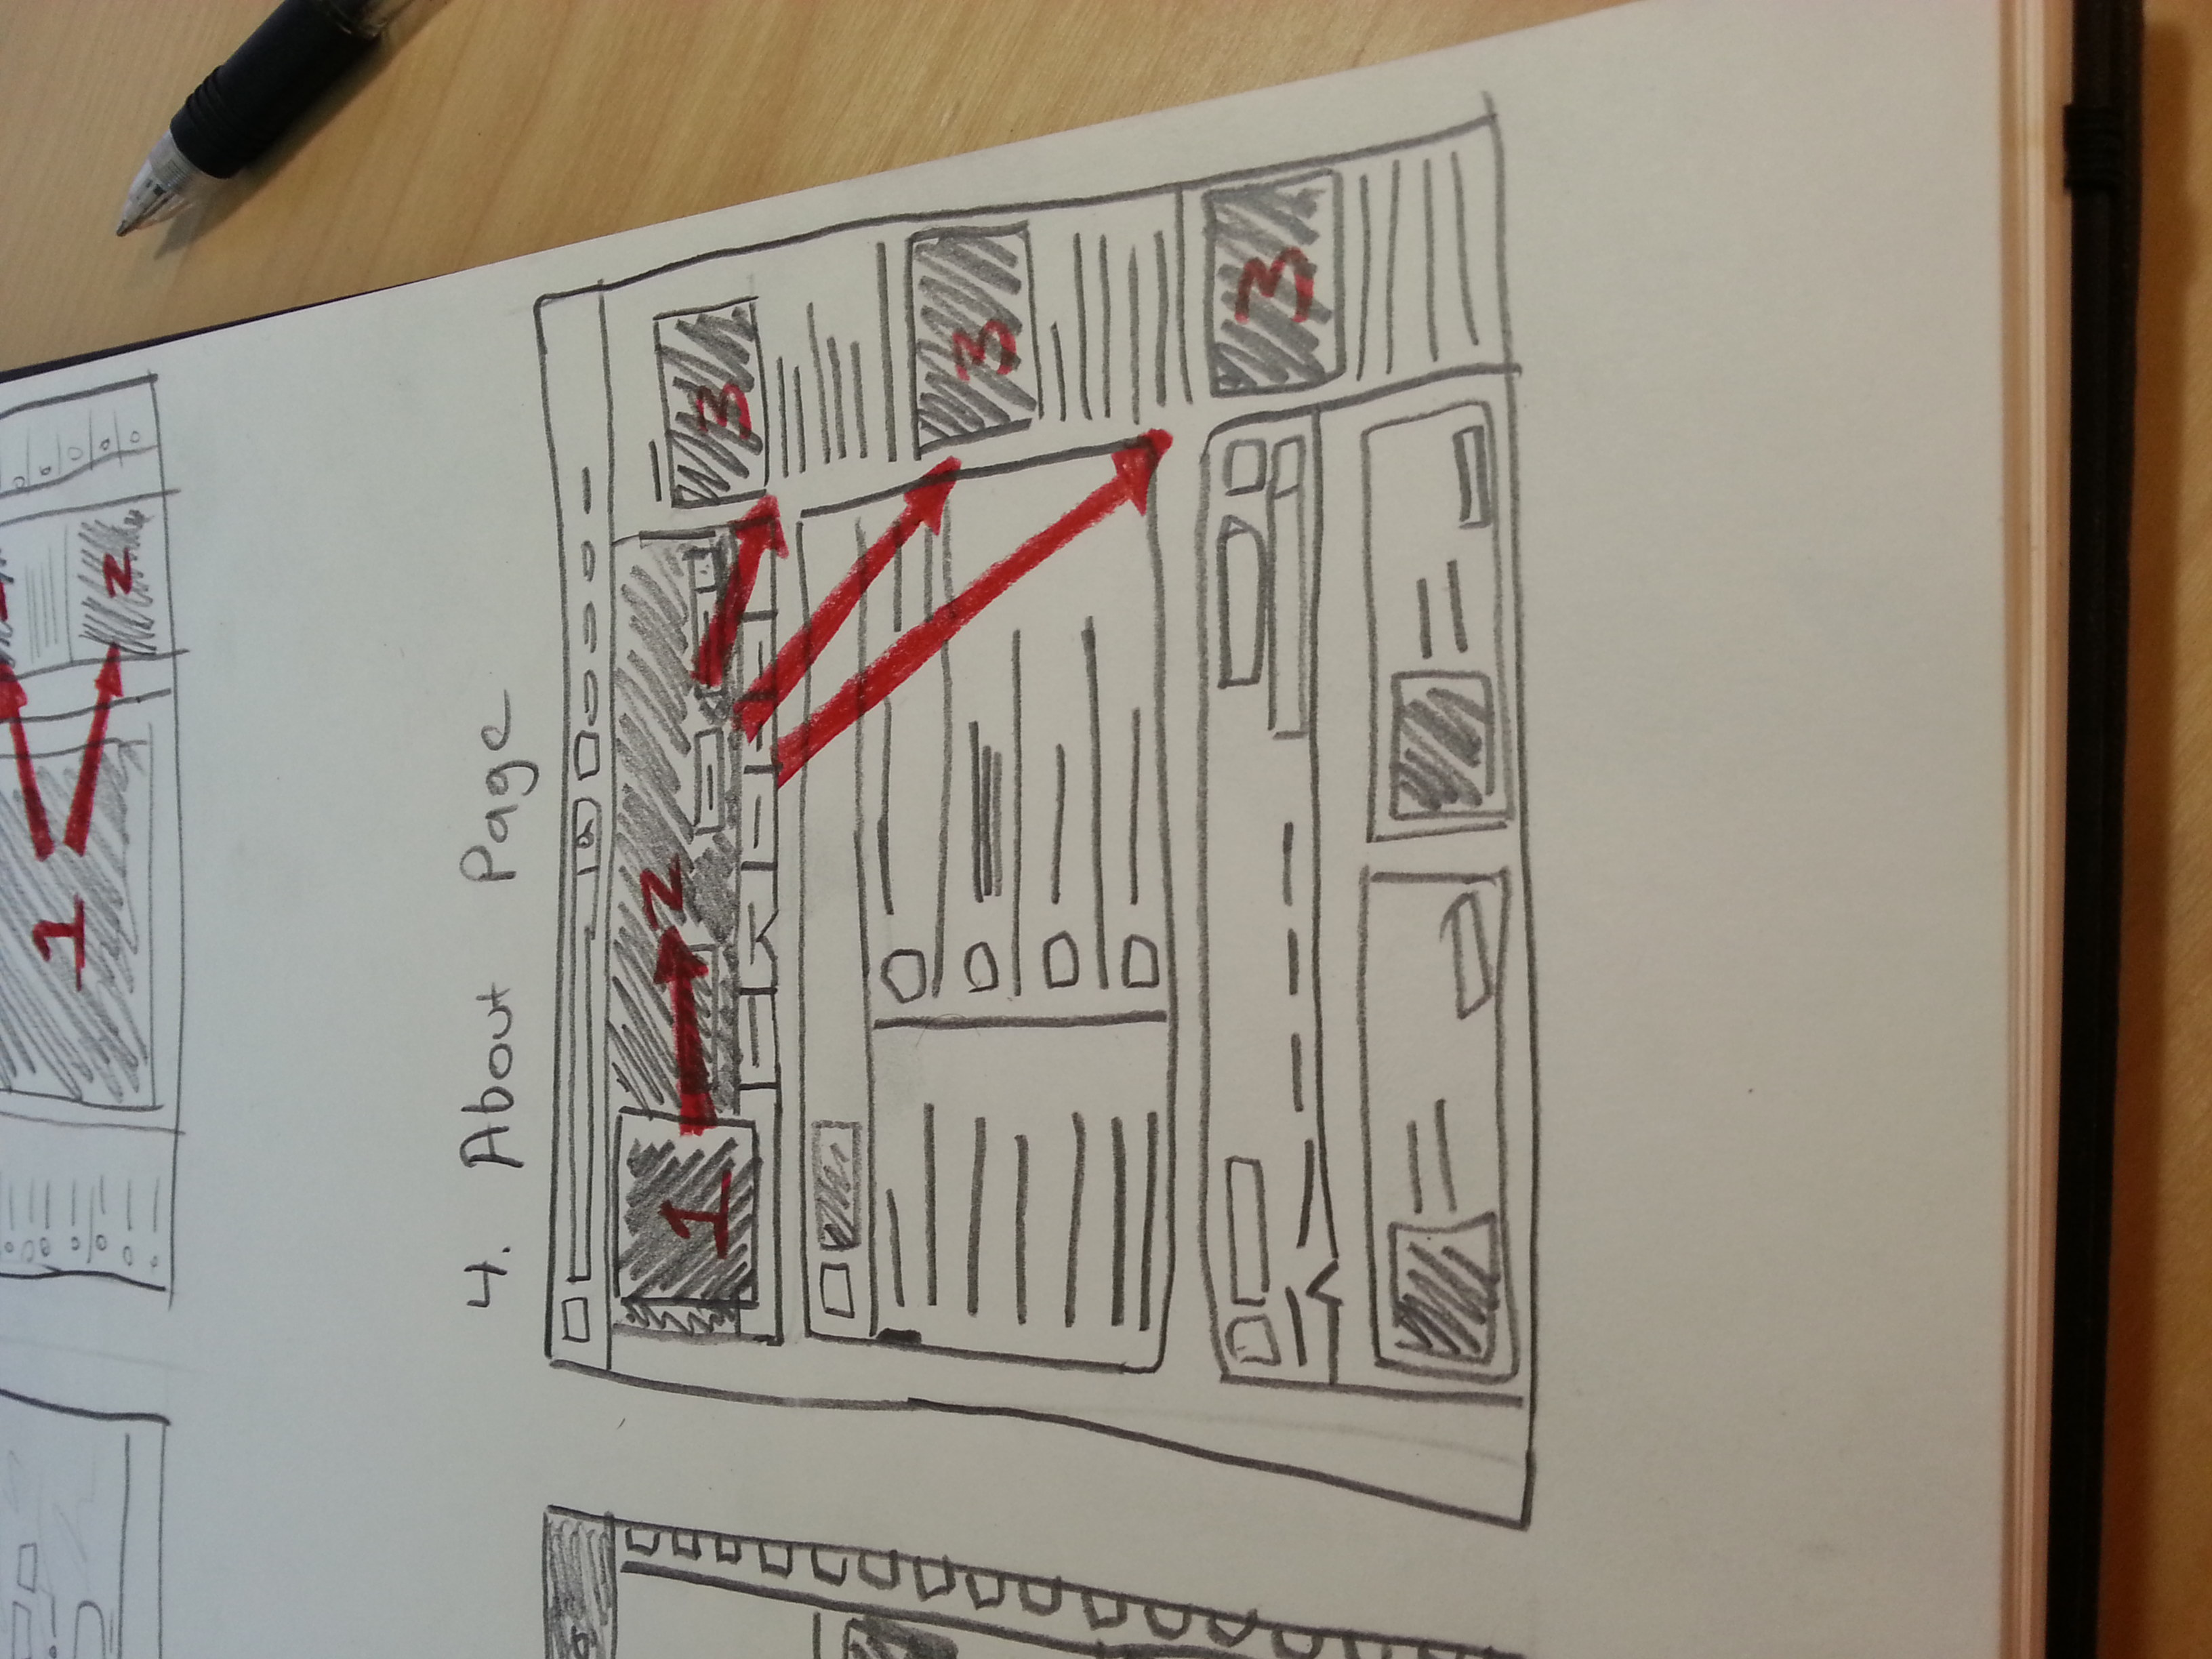 1
2
4. About Page
1
2
3
3
3